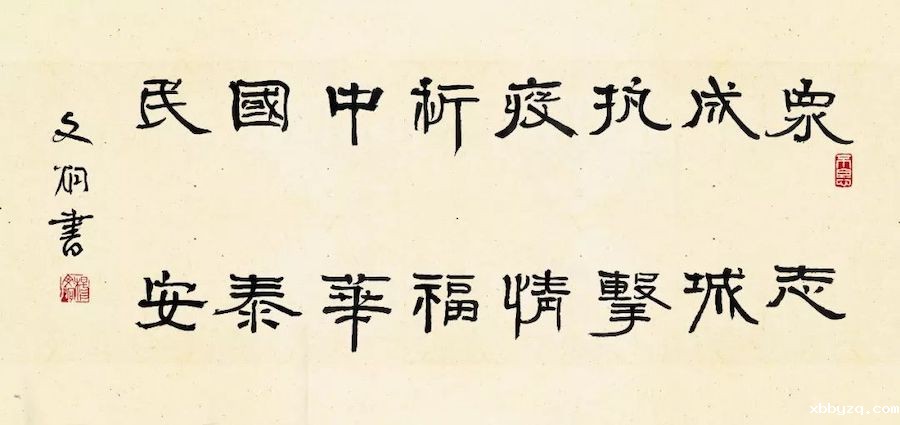 眾志
成城
抗擊
疫情
祈福
中華
國泰
民安
文炯書
xbbyzq.com